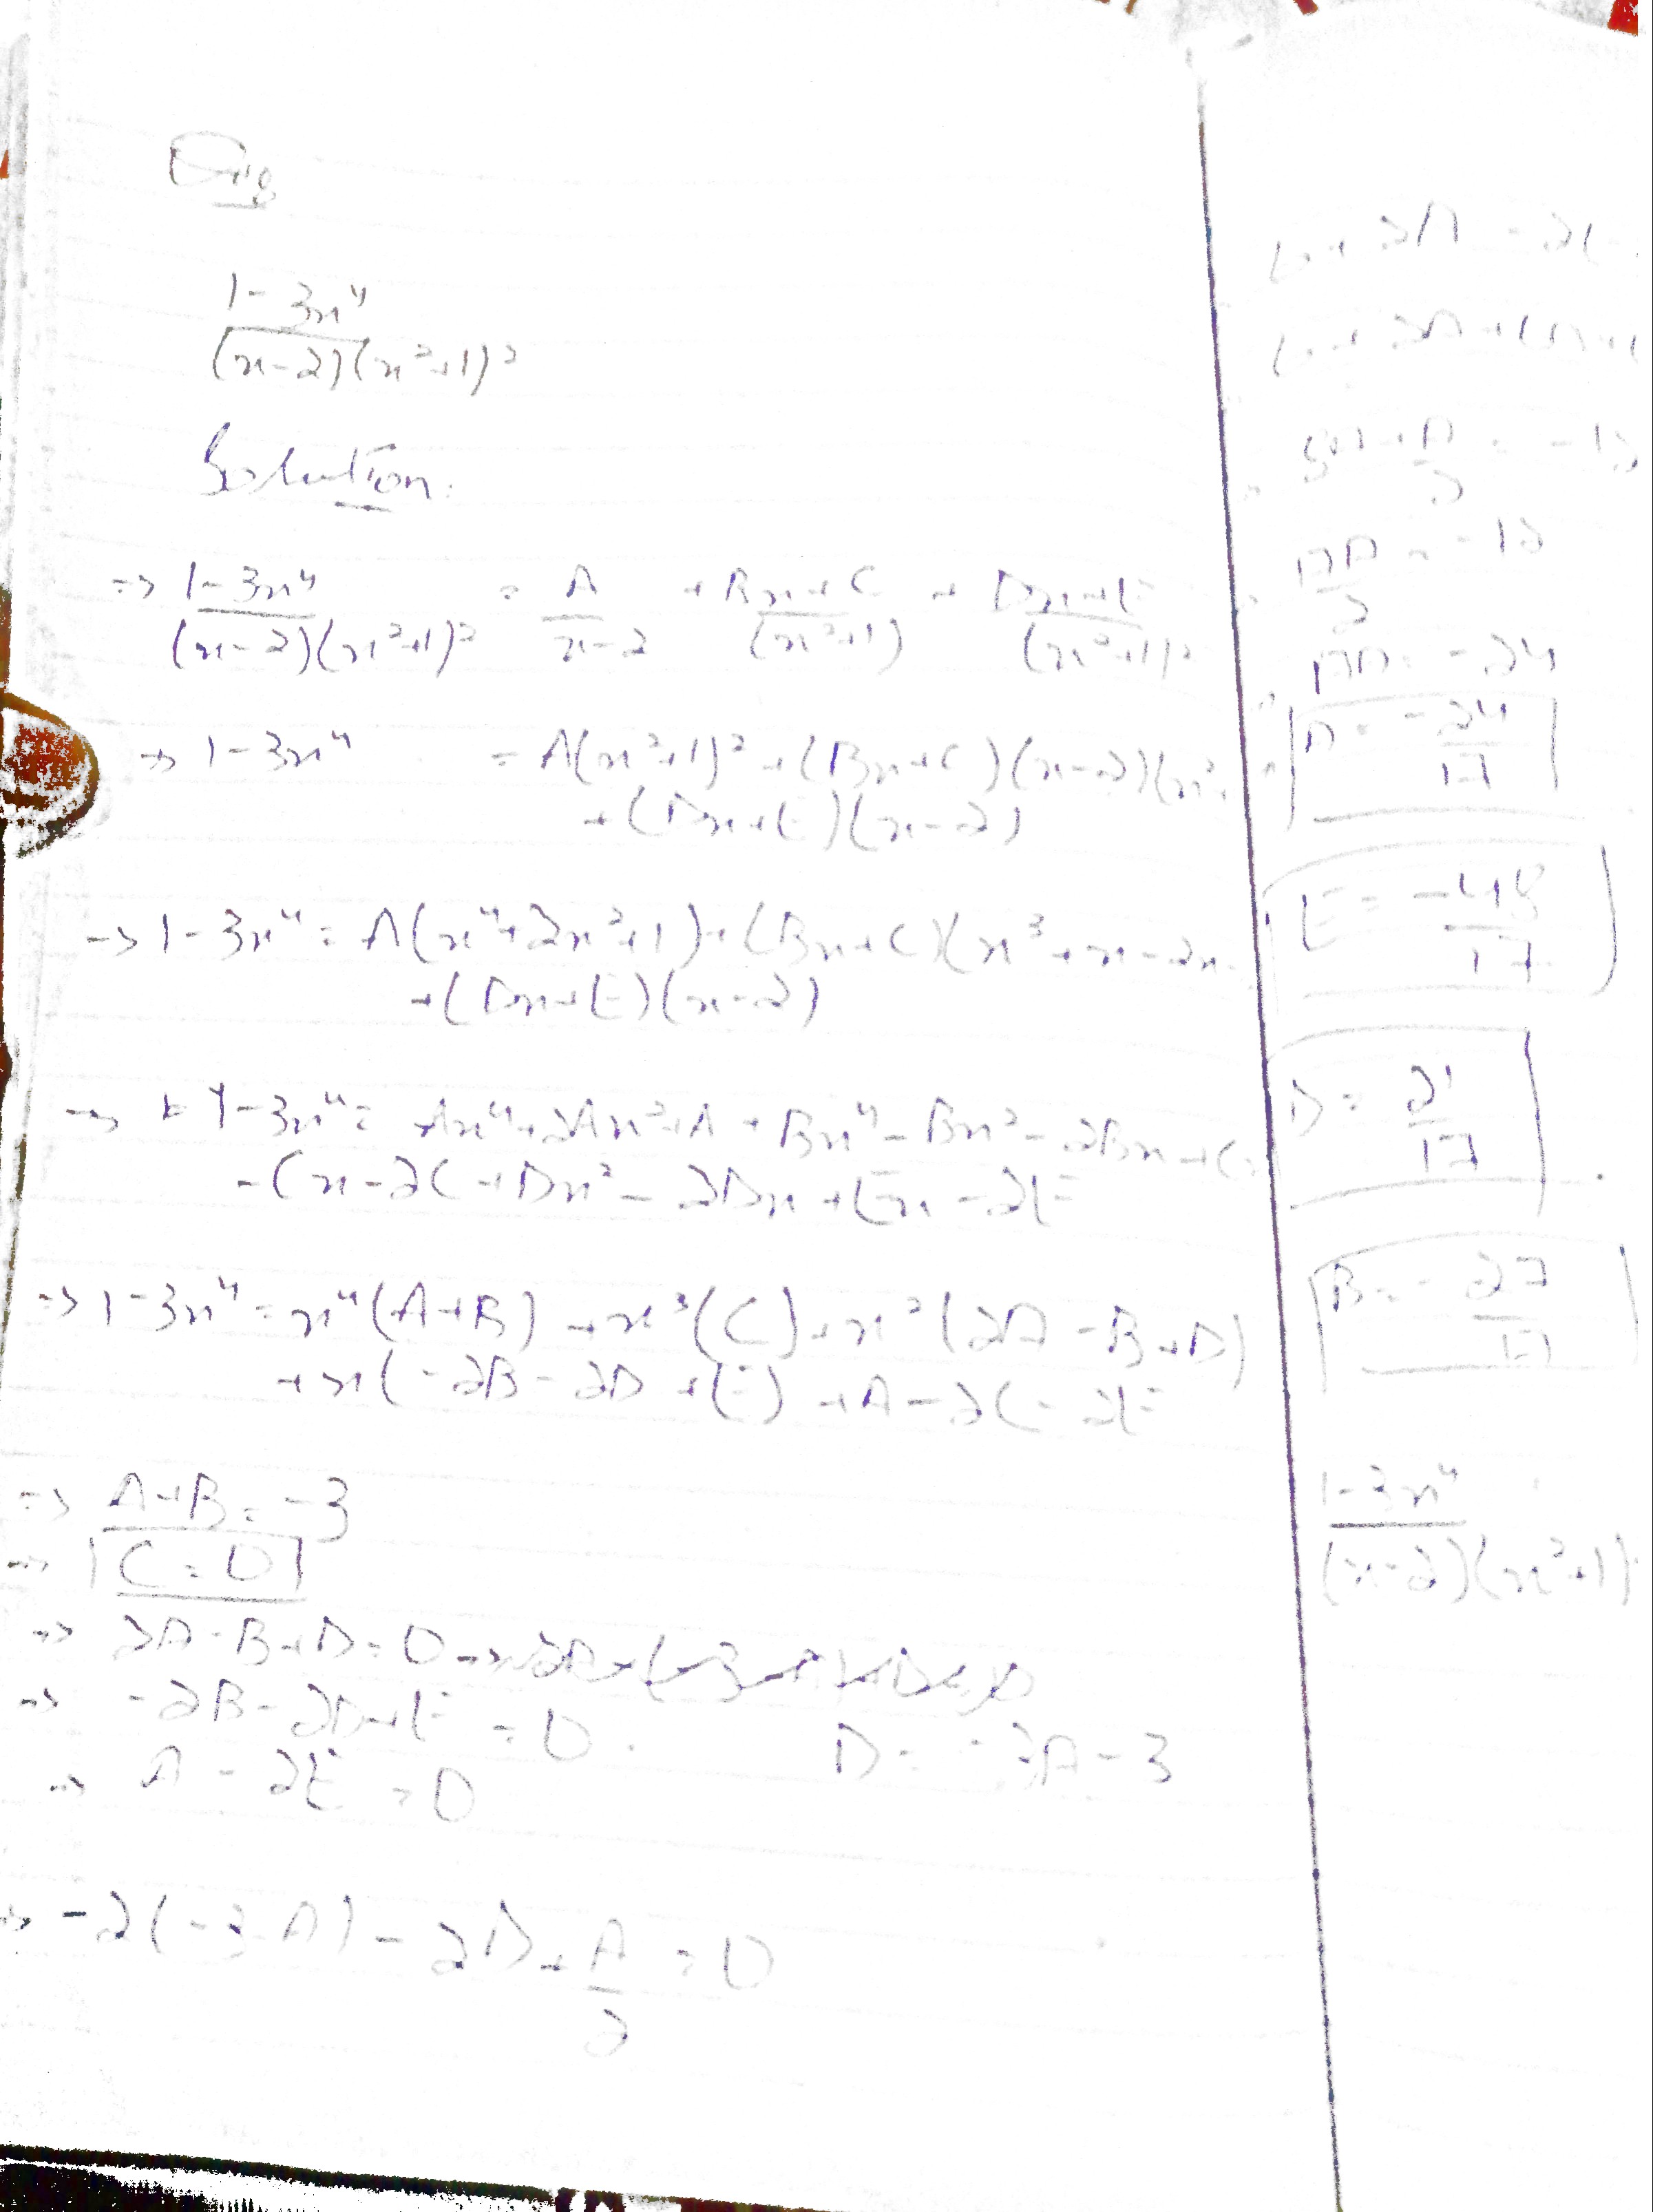 1-3x⁴
(x-2)(x²+1)²
Solution:
=> 1-3x⁴ = A + Bx+C + Dx+E
(x-2)(x²+1)² x-2 (x²+1) (x²+1)²
=> 1-3x⁴ = A(x²+1)² +(Bx+C)(x-2)(x²
+(Dx+E)(x-2)
=> 1-3x⁴ = A(x⁴+2x²+1)+(Bx+C)(x³+x-2x
+(Dx+E)(x-2)
=> 1-3x⁴ = Ax⁴+2Ax²+A+Bx⁴-Bx²-2Bx+C
-Cx-2C+Dx²-2Dx+Ex-2E
=> 1-3x⁴ = x⁴(A+B)+x³(C)+x²(2A-B+D)
+x(-2B-2D+E)+A-2C-2E
=> A+B=-3
=> C=0
=> 2A-B+D=0
=> -2B-2D+E=0
D=-3A-3
=> A-2E=0
=> -2(-3-A)-2D+A=0
2
= -12
2
17A = -12
2
17A = -24
A = -24
17
E = -48
17
D = 21
17
B = -27
17
1-3x⁴
(x-2)(x²+1)